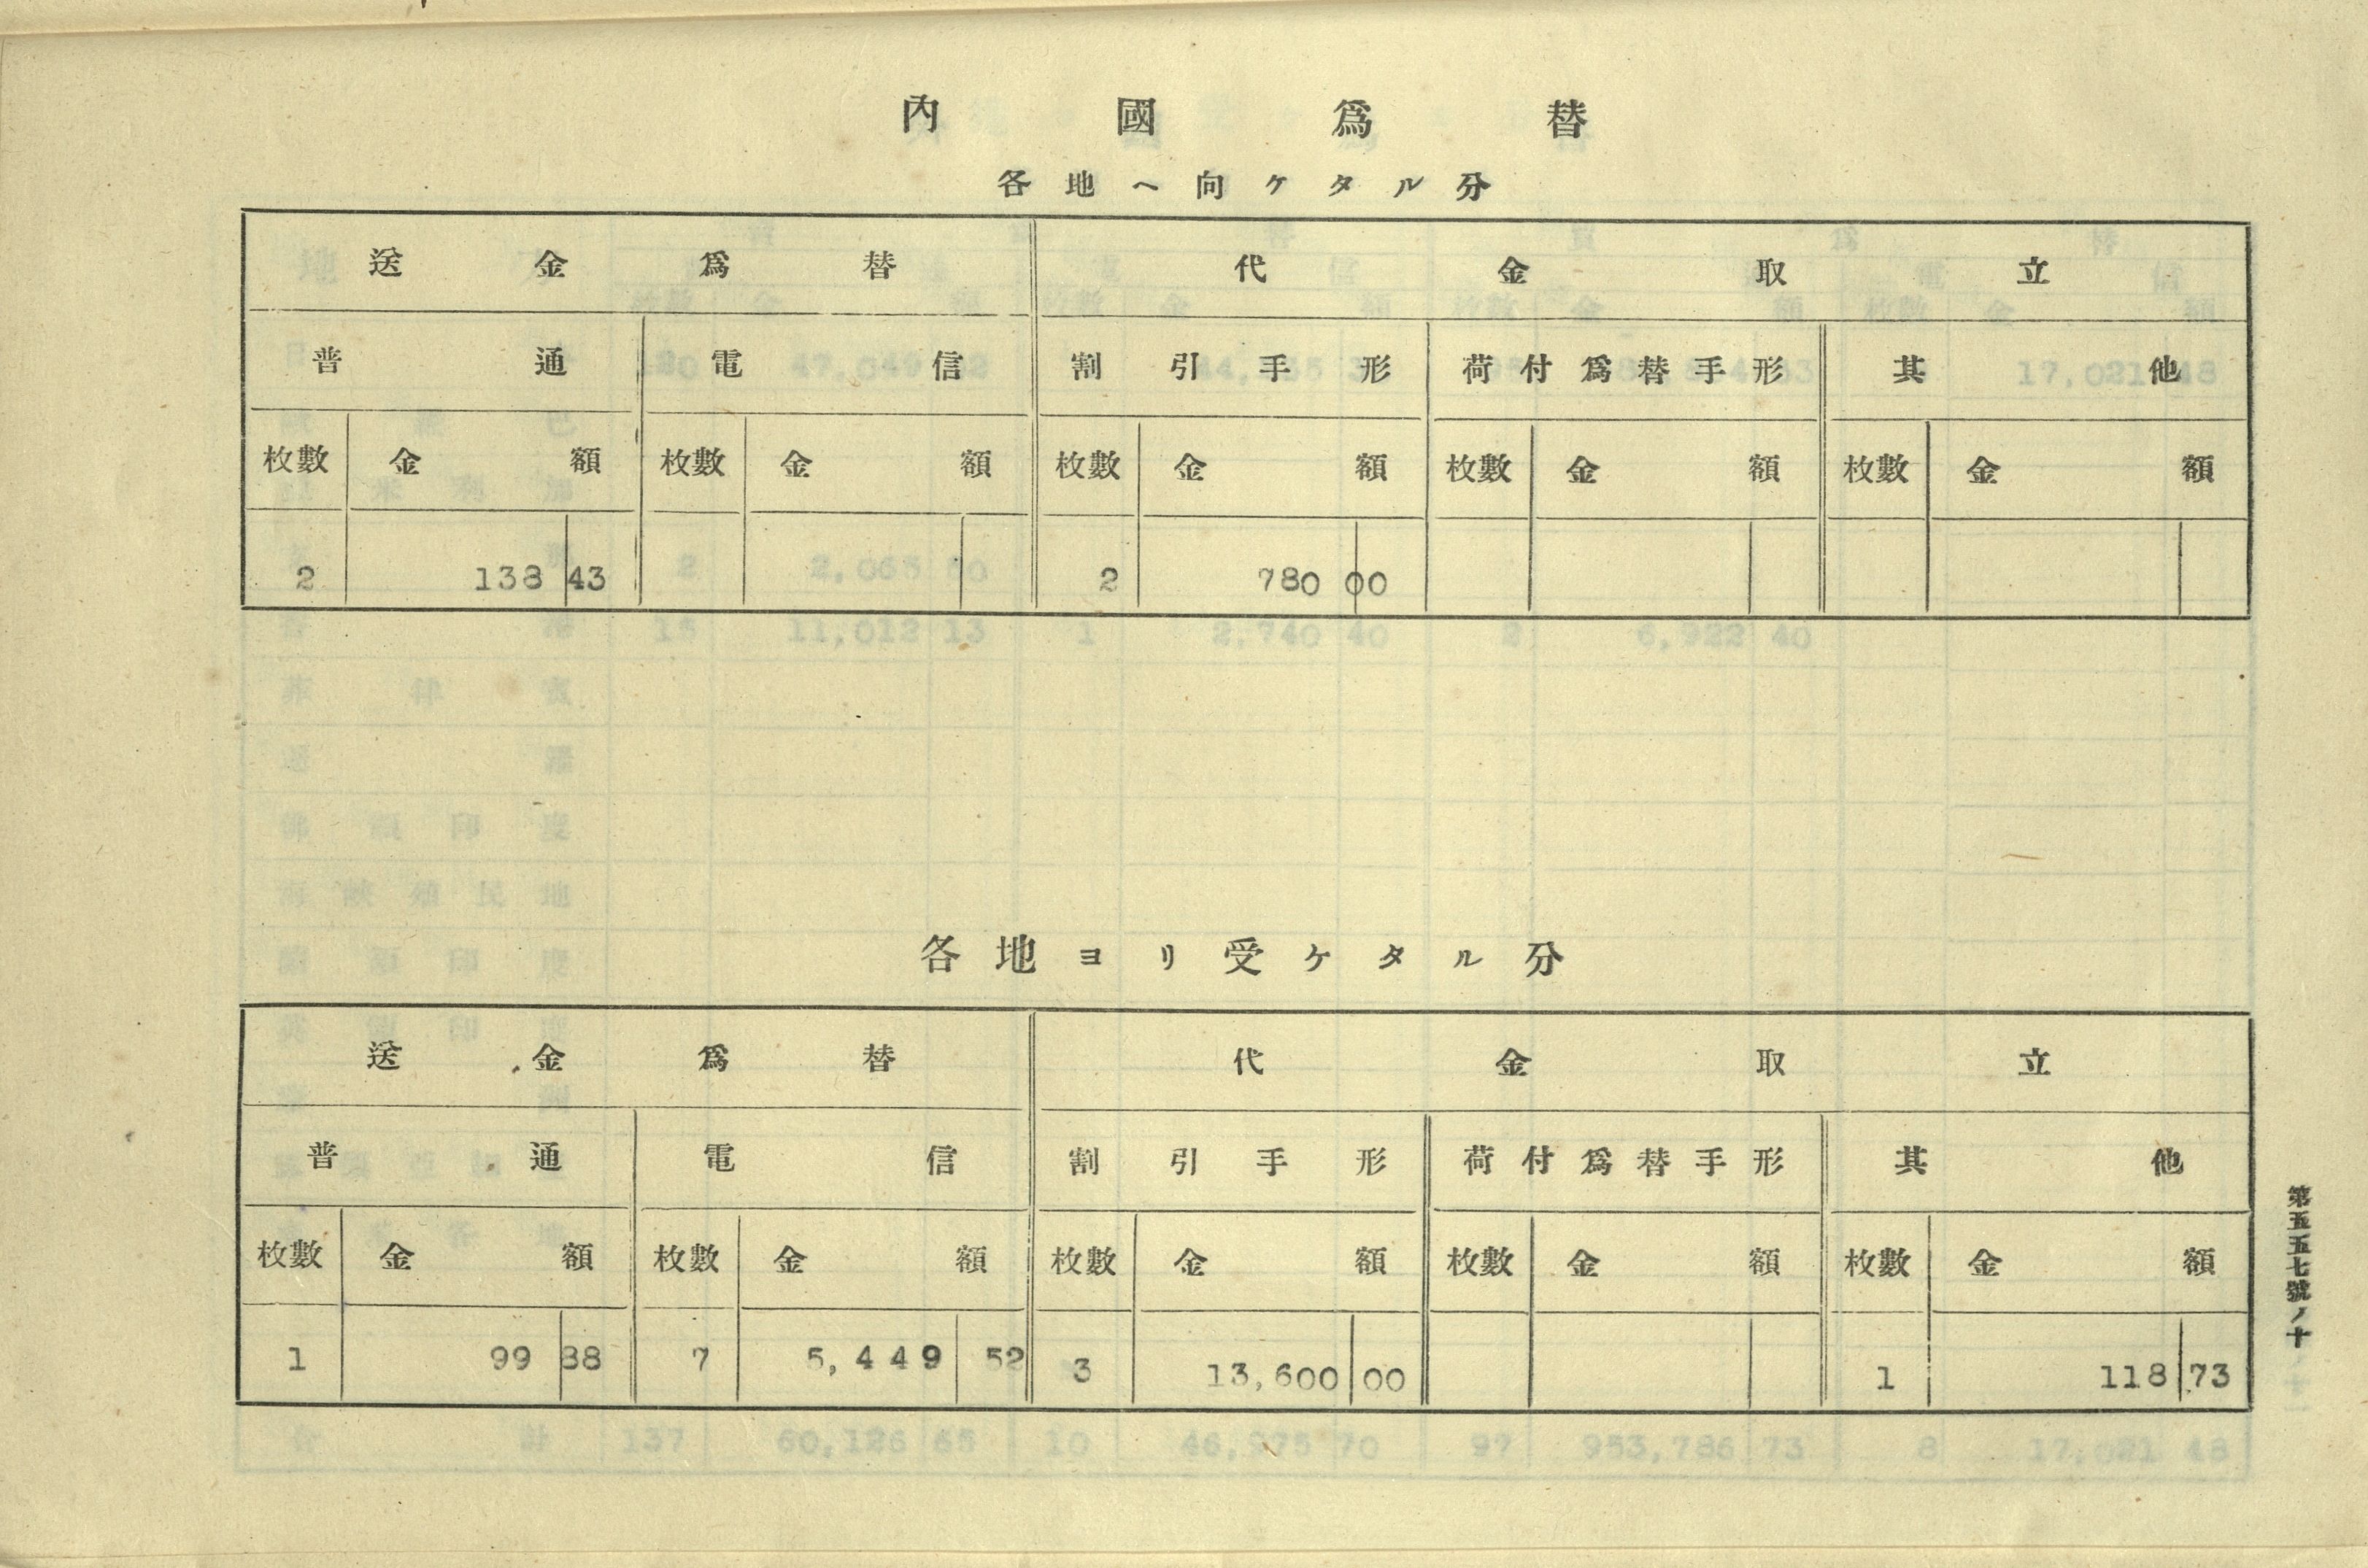 內國爲替
各地ヘ向ケタル分
送金爲替 代金取立
普通 電信 割引手形 荷付爲替手形 其他
枚數 金額 枚數 金額 枚數 金額 枚數 金額 枚數 金額
2 138 43 2 780 00
各地ヨリ受ケタル分
送金爲替 代金取立
普通 電信 割引手形 荷付爲替手形 其他
枚數 金額 枚數 金額 枚數 金額 枚數 金額 枚數 金額
1 99 88 7 5,449 52 3 13,600 00 1 118 73
第五五七號ノ十